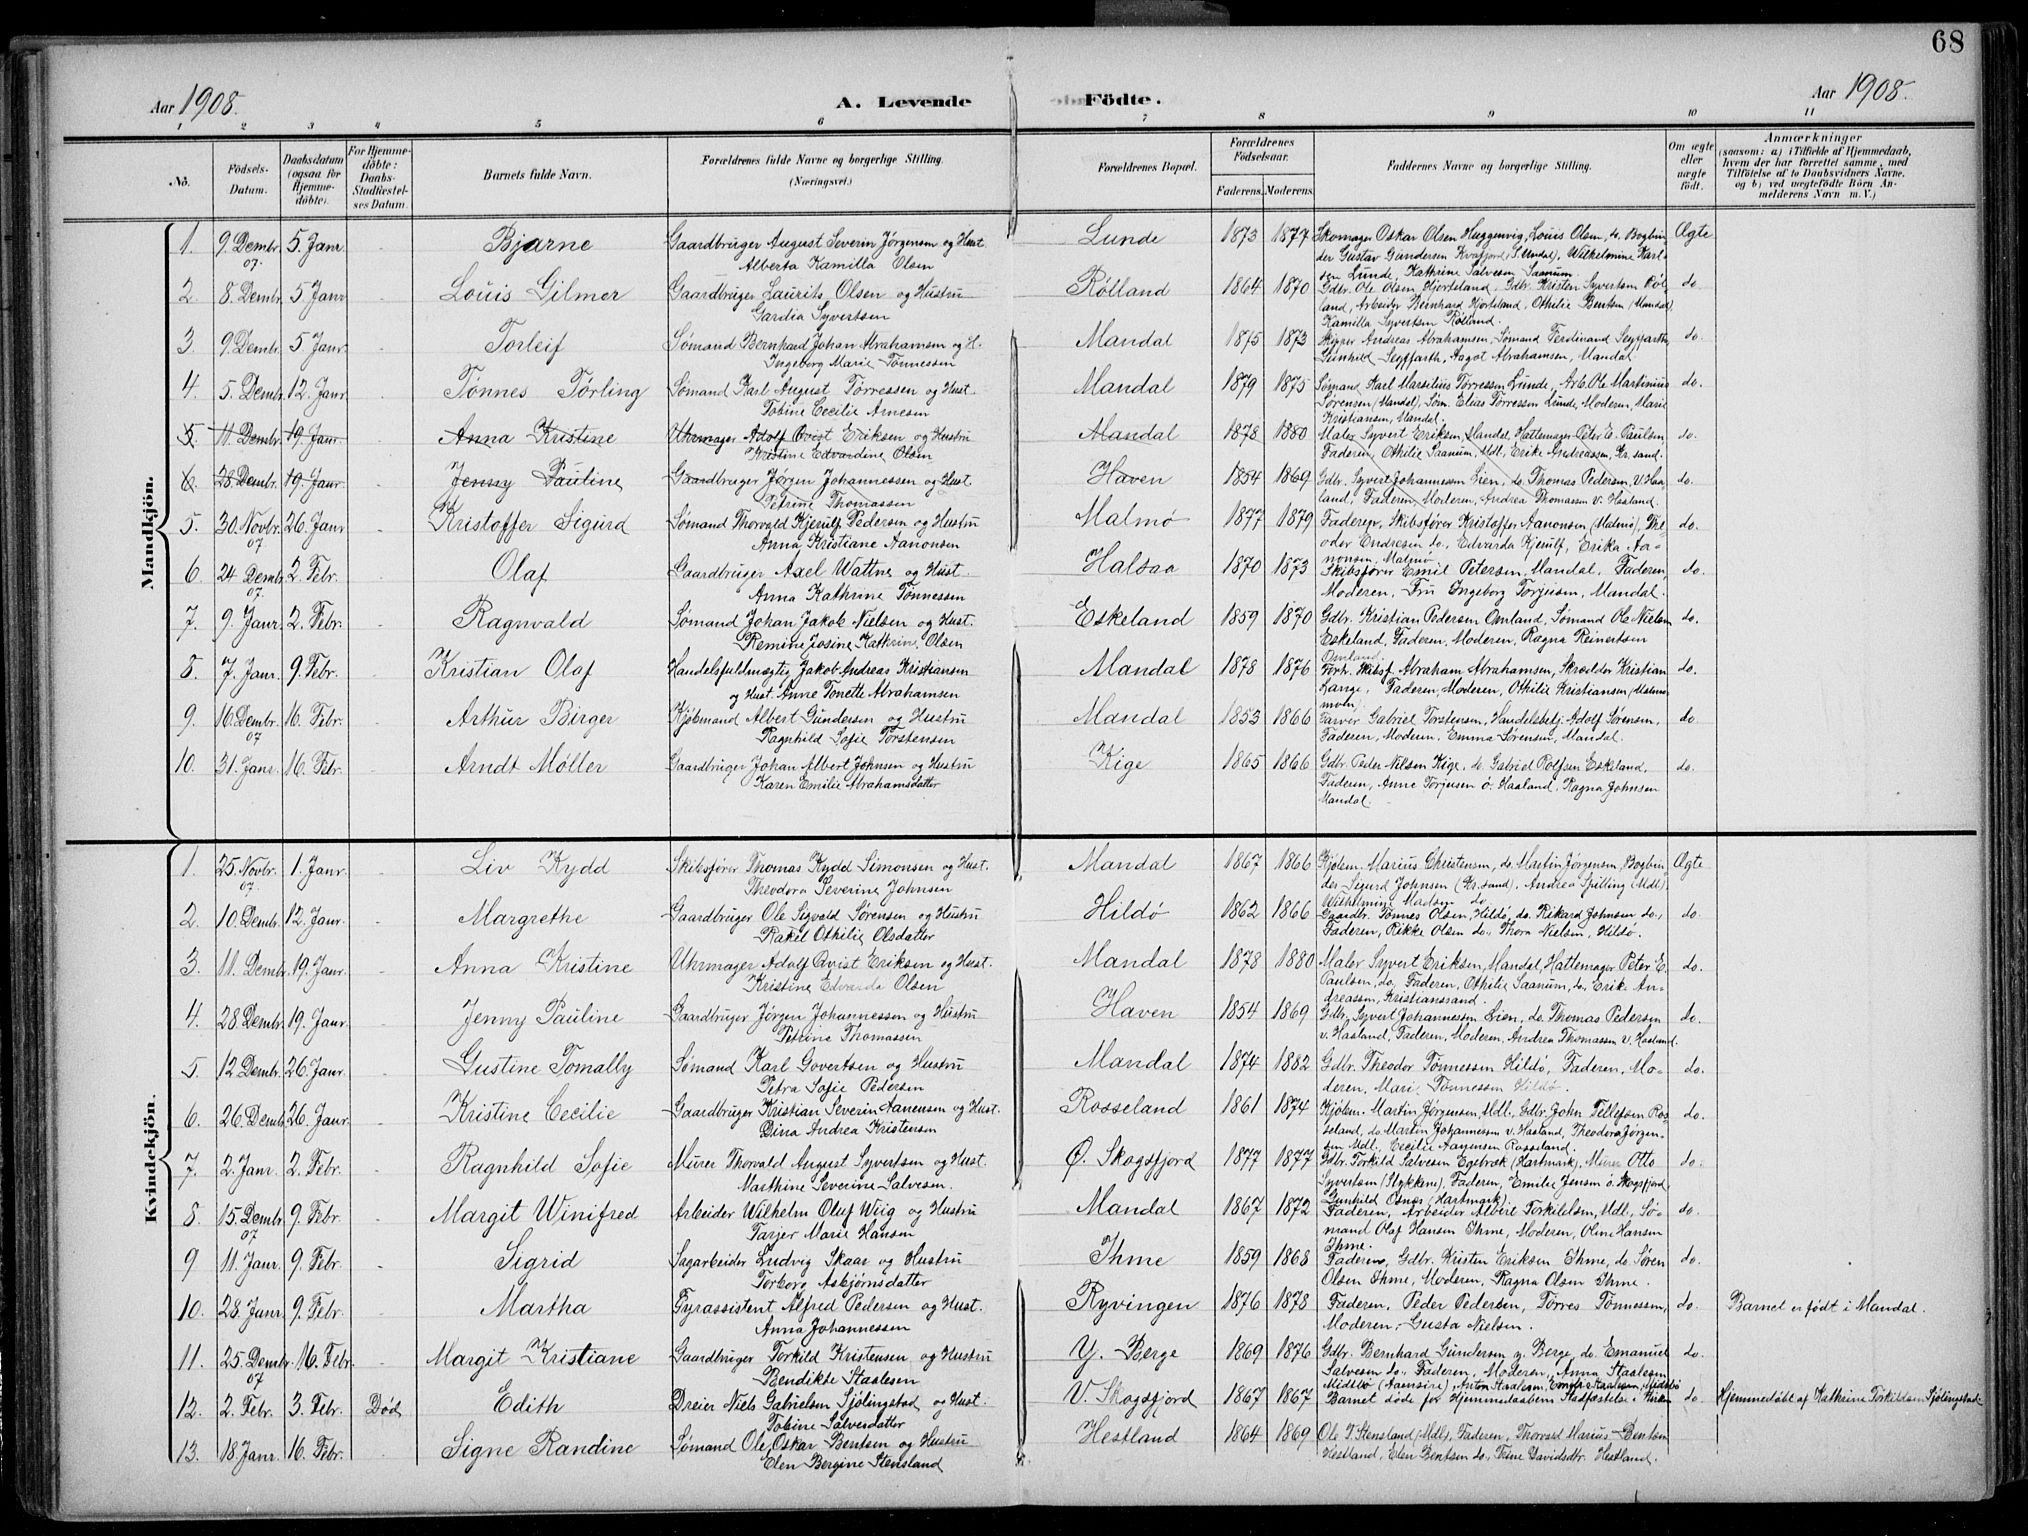 68
Aar 1908. A. Levende Födte. Aar 1908.
1 2 3 4 5 6 7 8 9 10 11
No. Födsels-Datum. Daabsdatum (ogsaa for Hjemme-döbte). For Hjemme-döbte: Daabs-Stadfæstel-ses Datum. Barnets fulde Navn. Forældrenes fulde Navne og borgerlige Stilling. (Næringsvei.) Forældrenes Bopæl. Forældrenes Födselsaar. Faderens. Moderens. Faddernes Navne og borgerlige Stilling. Om ægte eller uægte födt. Anmærkninger (saasom: a) i Tilfælde af Hjemmedaab, hvem der har forrettet samme, med Tilföielse af to Daabsvidners Navne, og b) ved uægtefödte Börn An-melderens Navn m. V.)
Mandkjön.
1. 9. Dembr. 07. 5. Janr. Bjarne Gaardbruger August Severin Jørgensen og Hust. Lunde 1873 1877 Skomager Oskar Olsen Huggenvig, Louis Olsen, do. Bogbin- Ægte
Alberta Kamilla Olsen der Gustav Gundersen Kvafjord (S. Undal), Wilhelmine Karl-
sen Lunde, Kathrine Salvesen Saanum.
2. 8. Dembr. 5 Janr. Louis Gilmer Gaardbruger Laurits Olsen og Hustru Rølland 1864 1870 Gdbr. Ole Olsen Hjorteland, Gdbr. Kristen Syvertsen Røl- do
Gardia Syvertsen land, Arbeider Bernhard Hjorteland, Othilie Bentsen (Mandal),
Kamilla Syvertsen Rølland.
3. 9. Dembr. 5 Janr. Torleif Sømand Bernhard Johan Abrahamsen og H. Mandal 1875 1873 Skipper Andreas Abrahamsen, Sømand Ferdinand Seyffarth, do.
Ingeborg Marie Tønnessen Gunhild Seyffarth, Aagot Abrahamsen, Mandal
4. 5. Dembr. 12. Janr. Tønnes Tørling Sømand Karl August Tørressen og Hust. Mandal 1879 1875 Sømand Karl Marselius Tørressen Lunde, Arb. Ole Martinius do.
Tobine Cecilie Arnesen Sørensen (Mandal), Søm. Elias Tørressen Lunde, Moderen, Marie
Kristiansen, Mandal.
5. 11. Dembr. 19. Janr. Anna Kristine Uhrmager Adolf Qvist Eriksen og Hustru Mandal 1878 1880 Maler Syvert Eriksen, Mandal, Hattemager Peter E. Paulsen, do.
Kristine Edvardine Olsen Faderen, Othilie Saanum, Mdl, Erike Andreassen, Kr.sand.
6. 28. Dembr. 19. Janr. Jenny Pauline Gaardbruger Jørgen Johannessen og Hust. Haven 1854 1869 Gdb. Syvert Johannessen Lien, do. Thomas Pedersen, V. Haa- do.
Petrine Thomassen land, Faderen, Moderen, Andrea Thomassen v. Haaland.
5. 30. Novbr. 07 26. Janr. Kristoffer Sigurd Sømand Thorvald Kjerulf Pedersen og Hustru Malmø 1877 1879 Faderen, Skibsfører Kristoffer Aanonsen (Malmø) The- do.
Anna Kristiane Aanonsen odor Endresen do., Edvarda Kjerulf, Erika Aa-
nonsen, Malmø
6. 24. Dembr. 07. 2. Febr. Olaf Gaardbruger Axel Wattne og Hust. Halsaa 1870 1873 Skibsfører Emil Petersen, Mandal, Faderen, do.
Anna Kathrine Tønnessen Moderen, Fru Ingeborg Torjusen, Mandal.
7. 9. Janr. 2. Febr. Ragnvald Sømand Johan Jakob Nielsen og Hust. Eskeland 1859 1870 Gdbr. Kristian Pedersen Omland, Sømand Ole Nielsen do.
Remine Josine Kathrin. Olsen Eskeland, Faderen, Moderen, Ragna Reinertsen
Omland.
8. 7. Janr. 9. Febr. Kristian Olaf Handelsfuldmægtig Jakob Andreas Kristiansen Mandal 1878 1876 Forh. Skibsf. Abraham Abrahamsen, Skrædder Kristian do.
og Hust. Anne Tonette Abrahamsen Lange, Faderen, Moderen, Othilie Kristiansen (Malmø
9. 16. Dembr. 07 16. Febr. Arthur Birger Kjøbmand Albert Gundersen og Hustru Mandal 1853 1866 Farver Gabriel Torstensen, Handelsbetj. Adolf Sørensen, do
Ragnhild Sofie Torstensen Faderen, Moderen, Emma Sørensen, Mandal.
10. 31. Janr. 16. Febr. Arndt Møller Gaardbruger Johan Albert Johnsen og Hustru Kige 1865 1866 Gdbr. Peder Nilsen Kige, do. Gabriel Rolfsen Eskeland, do.
Karen Emilie Abrahamsdatter Faderen, Anne Torjusen ö. Haaland, Ragna Johnsen
Mandal.
Kvindekjön.
1. 25. Novbr. 07. 1. Janr. Liv Kydd Skibsfører Thomas Kydd Simonsen og Hust. Mandal 1867 1866 Kjøbm. Marius Christensen, do. Martin Jørgensen, Bogbin- Ægte
Theodora Severine Johnsen der Sigurd Johnsen (Kr.sand), Andrea Spilling (Mdl),
Wilhelmine Madsen do.
2. 10. Dembr. 12. Janr. Margrethe Gaardbruger Ole Sigvald Sørensen og Hustru Hildø 1862 1866 Gaardbr. Tønnes Olsen, Hildö, do. Rikard Johnsen do., do.
Rakel Othilie Olsdatter Faderen, Rikke Olsen do., Thora Nielsen, Hildø.
3. 11. Dembr. 19. Janr. Anna Kristine Uhrmager Adolf Qvist Eriksen og Hust. Mandal 1878 1880 Maler Syvert Eriksen, Mandal, Hattemager Peter E. do.
Kristine Edvarda Olsen Paulsen, do, Faderen, Othilie Saanum, do., Erik. An-
dreassen, Kristianssand.
4. 28. Dembr. 19. Janr. Jenny Pauline Gaardbruger Jørgen Johannessen og Hustru Haven 1854 1869 Gdbr. Syvert Johannessen Lien, do. Thomas Pedersen do.
Petrine Thomassen v. Haaland, Faderen, Moderen, Andrea Thomassen v. Haaland.
5. 12. Dembr. 26. Janr. Gustine Tomally Sømand Karl Govertsen og Hustru Mandal 1874 1882 Gdbr. Theodor Tønnessen Hildø, Faderen, Mo- do.
Petra Sofie Pedersen deren, Marie Tønnessen Hildø.
6. 26. Dembr. 26. Janr. Kristine Cecilie Gaardbruger Kristian Severin Aanensen og Hust. Rosseland 1861 1874 Kjøbm. Martin Jørgensen, Mdl., Gdbr. John Tellefsen Ros- do.
Dina Andrea Kristensen seland, do Martin Johannessen v. Haaland, Theodora Jørgen-
sen Mdl. Cecilie Aanensen Rosseland.
7. 2. Janr. 2. Febr. Ragnhild Sofie Murer Thorvald August Syvertsen og Hust. Ø. Skogsfjord 1877 1877 Gdbr. Torkild Salvesen Egebræk (Hartmark), Murer Otto do.
Marthine Severine Salvesen. Syvertsen (Stykkene), Faderen, Emilie Jensen ö. Skogsfjord,
Gunhild Osnes (Hartmark).
8. 15. Dembr. 07 9. Febr. Margit Winifred Arbeider Wilhelm Oluf Weig og Hustru Mandal 1867 1872 Faderen, Arbeider Albert Torkildsen, Mdl, Sø- do.
Tarjer Marie Hansen mand Olaf Hansen Ihme, Moderen, Oline Hansen
Ihme.
9 11. Janr. 9. Febr. Sigrid Sagarbeider Ludvig Skaar og Hustru Ihme 1859 1868 Faderen, Gdbr. Kristen Eriksen Ihme, do. Søren do.
Torborg Asbjørnsdatter Olsen Ihme, Moderen, Ragna Olsen Ihme.
10. 28. Janr. 9. Febr. Martha Fyrassistent Alfred Pedersen og Hust. Ryvingen 1876 1878 Faderen, Peder Pedersen, Tørres Tønnessen, do. Barnet er født i Mandal.
Anna Johannessen Moderen, Gusta Nielsen.
11. 25. Dembr. 07 16. Febr. Margit Kristiane Gaardbruger Torkild Kristensen og Hustru Y. Berge 1869 1876 Gdbr. Bernhard Gundersen y. Berge, do. Emanuel do.
Bendikte Staalesen Salvesen do., Faderen, Moderen, Anna Staalesen
12. 2. Febr. 3. Febr. Død Edith Dreier Niels Gabrielsen Sjølingstad og Hust. V. Skogsfjord 1867 1867 Barnet døde før Hjemmedaabens Stadfæstelse i Kirken do. Hjemmedøbt af Kathrine Torkildsen Sjølingstad
Tobine Salvesdatter
13. 18 Janr. 16. Febr. Signe Randine Sømand Ole Oskar Bentsen og Hustru Hestland 1864 1869 Ole T. Stensland (Mdl), Faderen, Thorvald Marius Bentsen
Elen Bergine Stensland Hestland, Elen Bentsen do., Trine Davidsdtr. Hestland.